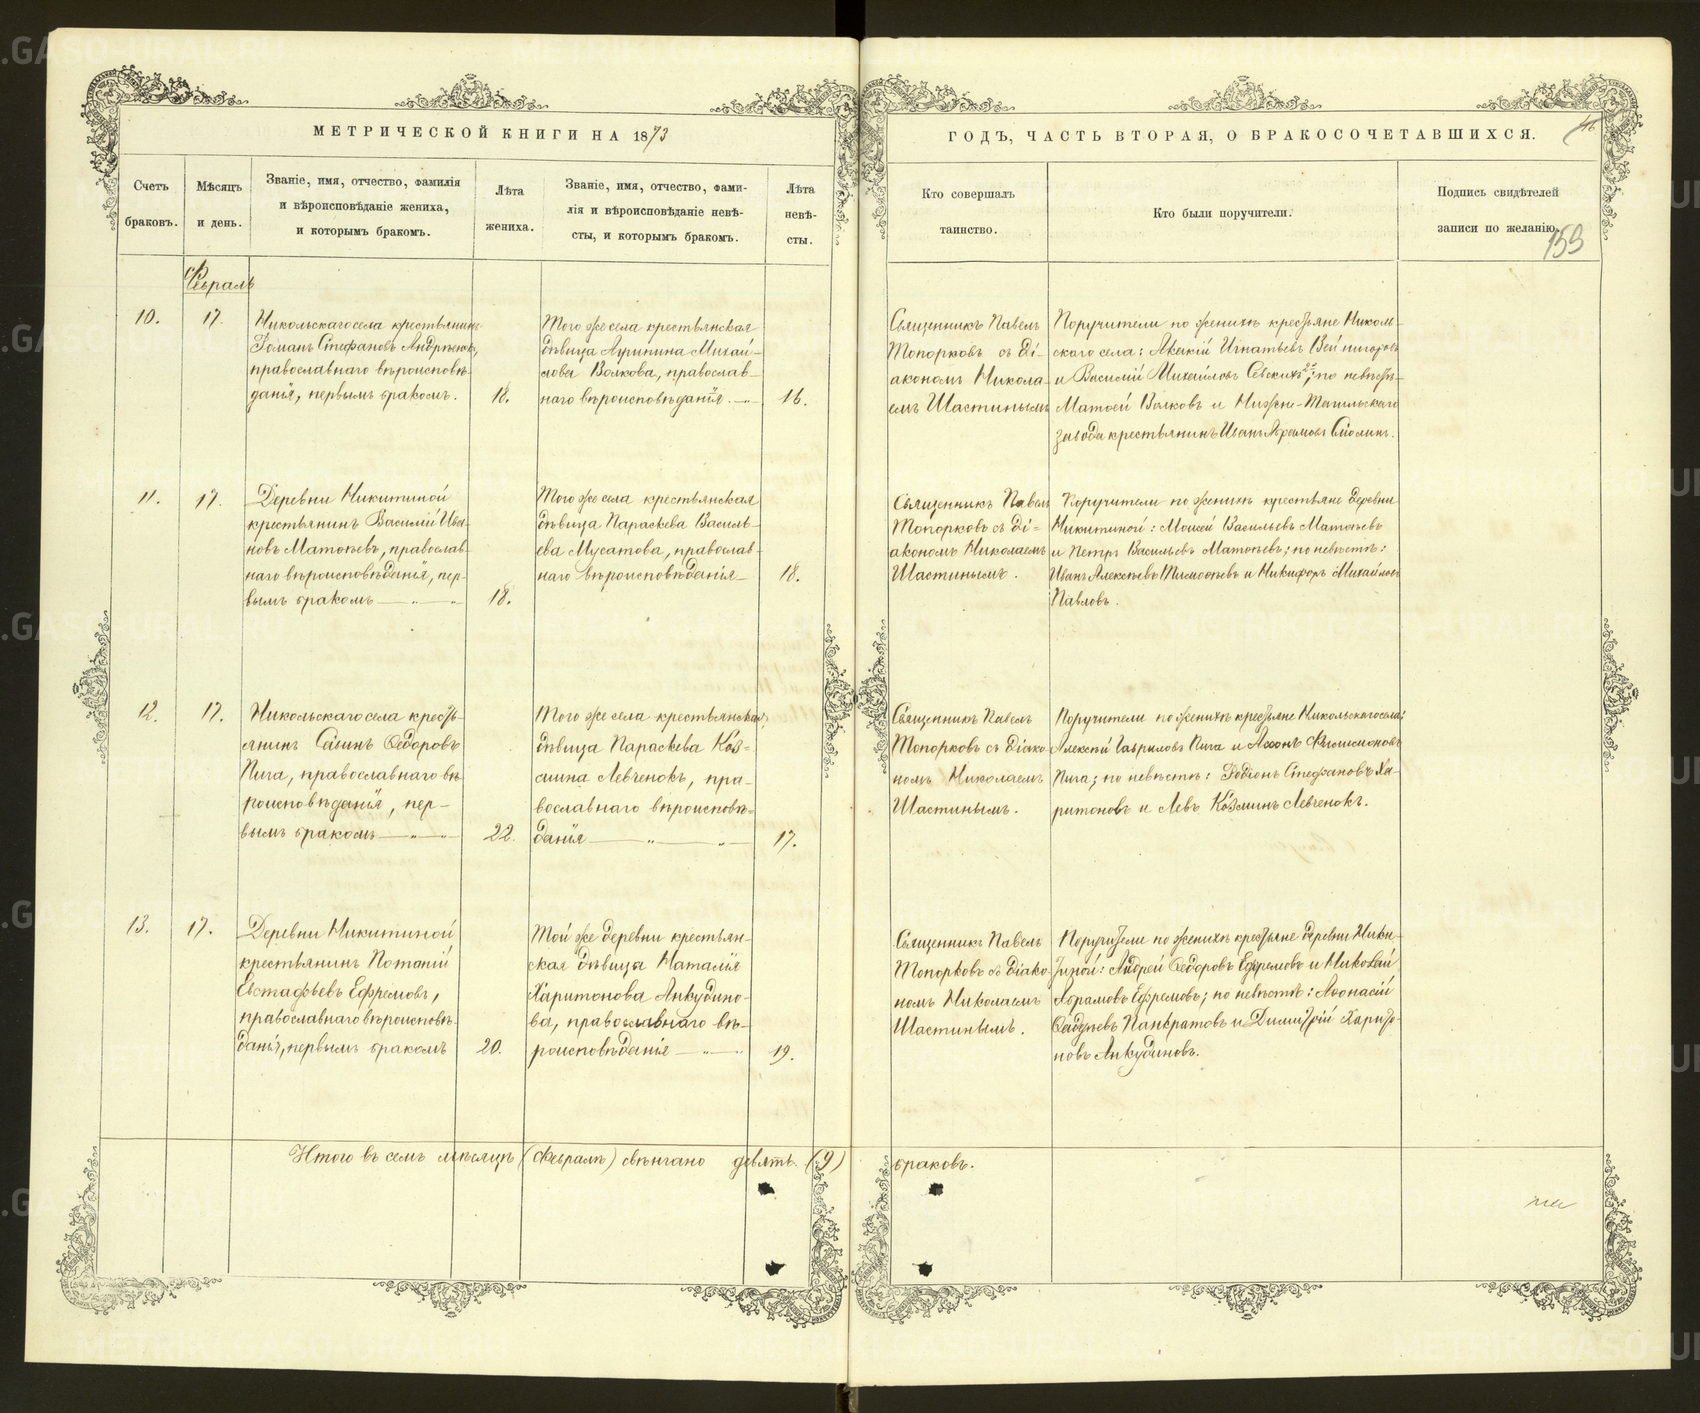 МЕТРИЧЕСКОЙ КНИГИ НА 1873
ГОДЪ, ЧАСТЬ ВТОРАЯ, О БРАКОСОЧЕТАВШИХСЯ.
Счетъ
браковъ.
Мѣсяцъ
и день.
Званіе, имя, отчество, фамилія
и вѣроисповѣданіе жениха,
и которымъ бракомъ.
Лѣта
жениха.
Званіе, имя, отчество, фами-
лія и вѣроисповѣданіе невѣ-
сты, и которымъ бракомъ.
Лѣта
невѣ-
сты.
Кто совершалъ
таинство.
Кто были поручители.
Подпись свидѣтелей
записи по желанію.
159
Февраль
10.
17.
Никольскаго села крестьянинъ
Романъ Стефановъ
православнаго вѣроисповѣ-
данія, первымъ бракомъ.
18.
Того же села крестьянская
дѣвица Агрипина Михай-
лова Волкова, православ-
наго вѣроисповѣданія.
16.
Священникъ Павелъ
Топорковъ съ Ді-
акономъ Никола-
емъ Шастинымъ
Поручители по женихѣ крестьяне Николь-
скаго села: Игнатьевъ
и Василій Михайловъ по невѣстѣ-
Матвей Волковъ и Нижне-Тагильскаго
завода крестьянинъ Иванъ
11.
17.
Деревни Никитиной
крестьянинъ Василій Ива-
новъ Матвѣевъ, православ-
наго вѣроисповѣданія, пер-
вымъ бракомъ
18.
Того же села крестьянская
дѣвица Параскева Василь-
ева Мусатова, православ-
наго вѣроисповѣданія
18.
Священникъ Павелъ
Топорковъ съ Ді-
акономъ Николаемъ
Шастинымъ.
Поручители по женихѣ крестьяне деревни
Никитиной: Моисей Васильевъ Матвѣевъ
и Петръ Васильевъ Матвѣевъ; по невѣстѣ:
Иванъ Алексѣевъ Тимофѣевъ и Никифоръ Михайловъ
Павловъ.
12.
17.
Никольскаго села кресть-
янинъ Савинъ Ѳедоровъ
Пига, православнаго вѣ-
роисповѣданія, пер-
вымъ бракомъ
22.
Того же села крестьянская
дѣвица Параскева Коз-
мина Левченокъ, пра-
вославнаго вѣроисповѣ-
данія
17.
Священникъ Павелъ
Топорковъ съ Діако-
номъ Николаемъ
Шастинымъ.
Поручители по женихѣ крестьяне Никольскаго села:
Алексѣй Гавриловъ Пига и
Пига; по невѣстѣ: Родіонъ Стефановъ Ха-
ритоновъ и Левъ Козминъ Левченокъ.
13.
17.
Деревни Никитиной
крестьянинъ Потапій
Евстафьевъ Ефремовъ,
православнаго вѣроисповѣ-
данія, первымъ бракомъ
20.
Той же деревни крестьян-
ская дѣвица Наталія
Харитонова Анкудино-
ва, православнаго вѣ-
роисповѣданія
19.
Священникъ Павелъ
Топорковъ съ Діако-
номъ Николаемъ
Шастинымъ.
Поручители по женихѣ крестьяне деревни Ники-
тиной: Андрей Ѳедоровъ Ефремовъ и Николай
Абрамовъ Ефремовъ; по невѣстѣ: Аѳонасій
Панкратовъ и Димитрій Харито-
новъ Анкудиновъ.
Итого въ семъ мѣсяцѣ (Февралѣ) свѣнчано девять (9)
браковъ.